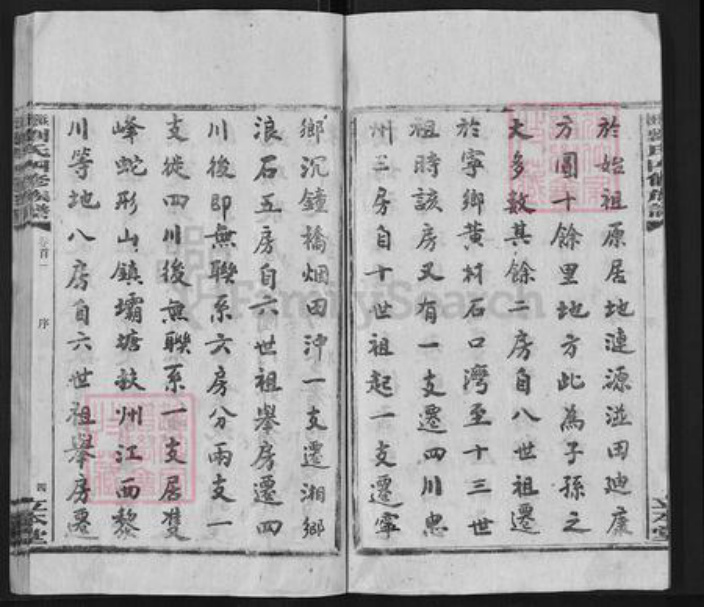 於始祖原居地漣源湴田迪康
方圓十餘里地方此為子孫之
大多數其餘二房自八世祖遷
於寧鄉黄材石口灣至十三世
祖時該房又有一支遷四川忠
州三房自十世祖起一支遷寧
鄉沉鐘橋烟田沖一支遷湘鄉
浪石五房自六世祖擧房遷四
川後即無聯系六房分兩支一
支徙四川後無聯系一支居雙
峰蛇形山鎮壩塘敖州江西黎
川等地八房自六世祖擧房遷
劉氏四修族譜
卷首一
序
四
立本堂
FamilySearch